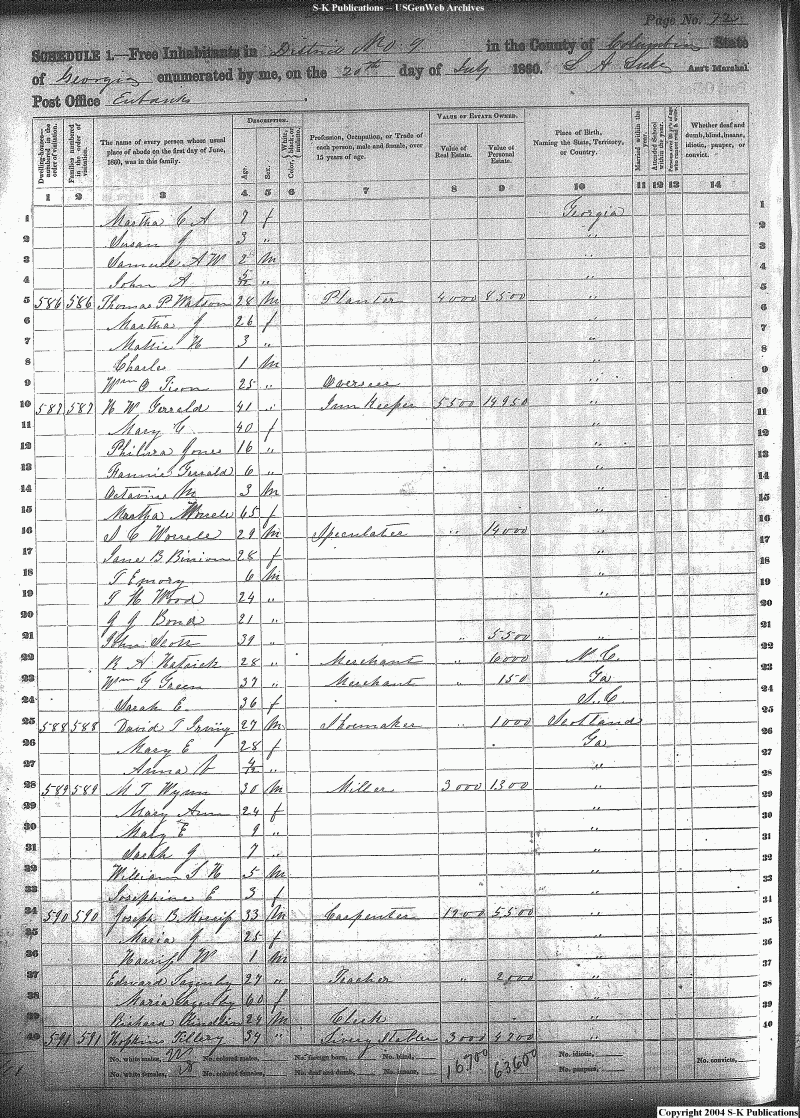 S-K Publications -- USGenWeb Archives
Page No. 72
SCHEDULE 1.—Free Inhabitants in District No. 9 in the County of Columbia State
of Georgia enumerated by me, on the 20th day of July 1860. Ass't Marshal
Post Office Eubanks
Dwelling-houses—numbered in the order of visitation.
Families numbered in the order of visitation.
The name of every person whose usual place of abode on the first day of June, 1860, was in this family.
DESCRIPTION.
Age.
Sex.
Color, White, black, or mulatto.
Profession, Occupation, or Trade of each person, male and female, over 15 years of age.
VALUE OF ESTATE OWNED.
Value of Real Estate.
Value of Personal Estate.
Place of Birth, Naming the State, Territory, or Country.
Married within the year.
Attended School within the year.
Whether deaf and dumb, blind, insane, idiotic, pauper, or convict.
1 2 3 4 5 6 7 8 9 10 11 12 13 14
1 Martha C A 7 f Georgia 1
2 Susan J 3 " " 2
3 Samuel A W 2 m " 3
4 John A 5/12 " " 4
5 586 586 Thomas P Watson 28 M Planter 4000 8500 " 5
6 Martha J 26 f " 6
7 Mattie H 3 " " 7
8 Charles 1 M " 8
9 Wm O Tison 25 " Overseer " 9
10 587 587 H W Gerrald 41 " Inn Keeper 5500 14950 " 10
11 Mary C. 40 f " 11
12 Jones 16 " " 12
13 Fannie Gerrald 6 " " 13
14 Octavius M 3 M " 14
15 Martha Worrell 45 f " 15
16 S C Worrell 29 M Speculater " 14000 " 16
17 Jane B Binion 28 f " 17
18 T Emory 6 M " 18
19 T H Wood 24 " " 19
20 J J Bond 21 " 20
21 John Scott 39 " " 5500 " 21
22 R A 28 " Merchant " 6000 N.C. 22
23 Wm G Green 37 " Merchant " 150 Ga 23
24 Sarah E. 36 f S.C 24
25 588 588 David T 27 M Shoemaker " 1000 Scotland 25
26 Mary E 28 f Ga 26
27 Anna " " 27
28 589 589 M T Wynn 30 M Miller 3000 1300 " 28
29 Mary Ann 24 f " 29
30 Mary E 9 " " 30
31 Sarah J 7 " " 31
32 William S H 5 M " 32
33 Josephine E 3 f " 33
34 590 590 Joseph B 33 M Carpenter 5500 " 34
35 Maria J 25 f " 35
36 W 1 M " 36
37 Edward 27 " Teacher " 2000 " 37
38 Maria 60 f " 38
39 Richard 24 M Clerk " 39
40 591 591 Hopkins Tillery 34 " Livery Stabler 3000 4200 " 40
No. white males, No. colored males, No. foreign born, No. blind, 16700 63600 No. idiotic, No. convicts,
No. white females, No. colored females, No. deaf and dumb, No. insane, No. paupers,
Copyright 2004 S-K Publications